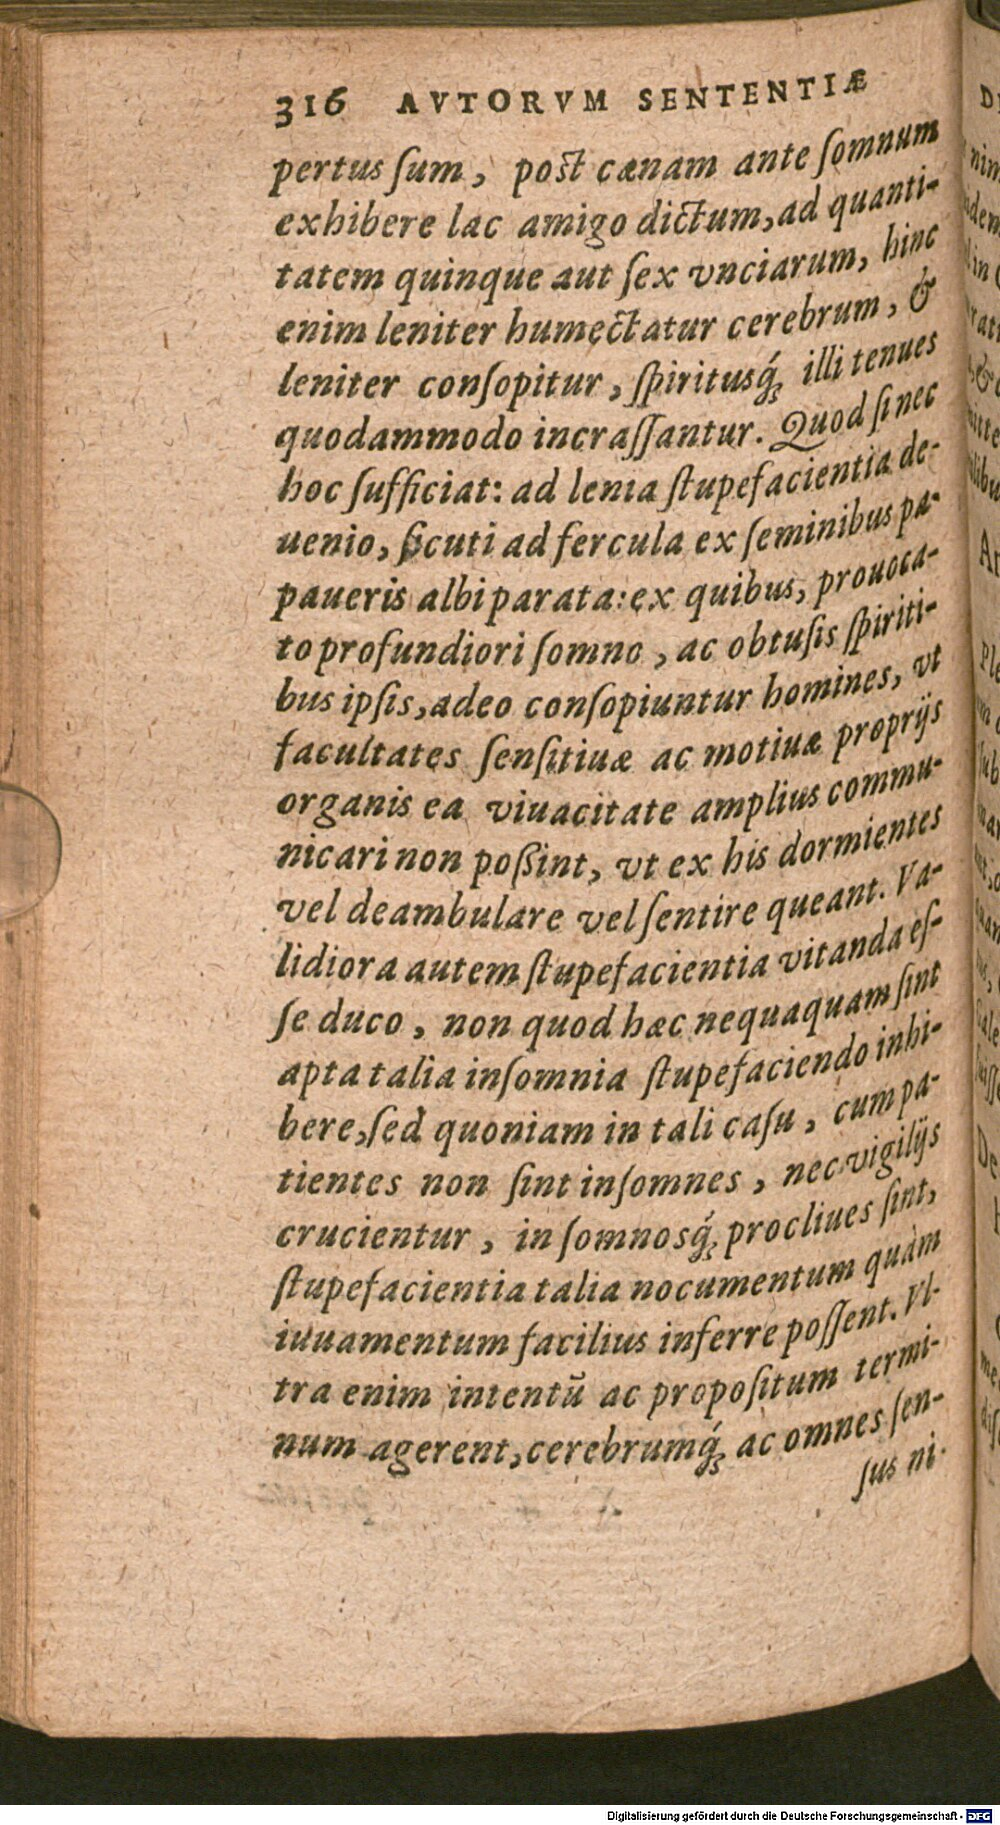 316 AVTORVM SENTENTIÆ
pertus ſum, poſt cænam ante ſomnum
exhibere lac amigo dictum, ad quanti-
tatem quinque aut ſex vnciarum, hinc
enim leniter humectatur cerebrum, &
leniter conſopitur, ſpiritusq́; illi tenues
quodammodo incraſſantur. Quod ſi nec
hoc ſufficiat: ad lenia ſtupefacientia de-
uenio, ſicuti ad fercula ex ſeminibus pa-
paueris albi parata: ex quibus, prouoca-
to profundiori ſomno, ac obtuſis ſpiriti-
bus ipſis, adeo conſopiuntur homines, vt
facultates ſenſitiuæ ac motiuæ proprijs
organis ea viuacitate amplius commu-
nicari non poßint, vt ex his dormientes
vel deambulare vel ſentire queant. Va-
lidiora autem ſtupefacientia vitanda eſ-
ſe duco, non quod hæc nequaquam ſint
apta talia inſomnia ſtupefaciendo inhi-
bere, ſed quoniam in tali caſu, cum pa-
tientes non ſint inſomnes, nec vigilijs
crucientur, in ſomnosq́; procliues ſint,
ſtupefacientia talia nocumentum quàm
iuuamentum facilius inferre poſſent. Vl-
tra enim intentū ac propoſitum termi-
num agerent, cerebrumq́; ac omnes ſen-
ſus ni-
Digitalisierung gefördert durch die Deutsche Forschungsgemeinschaft - DFG